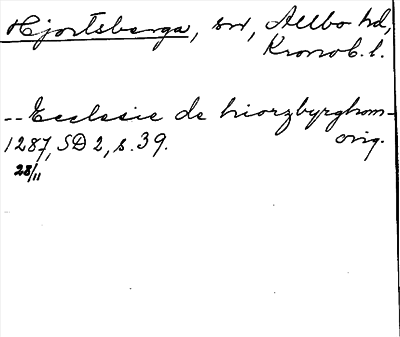 Hjortsberga, sn, Allbo hd,
Kronob. l.
-- Ecclesie de hiorzbyrghom -
1287, SD 2, s. 39. orig.
28/11